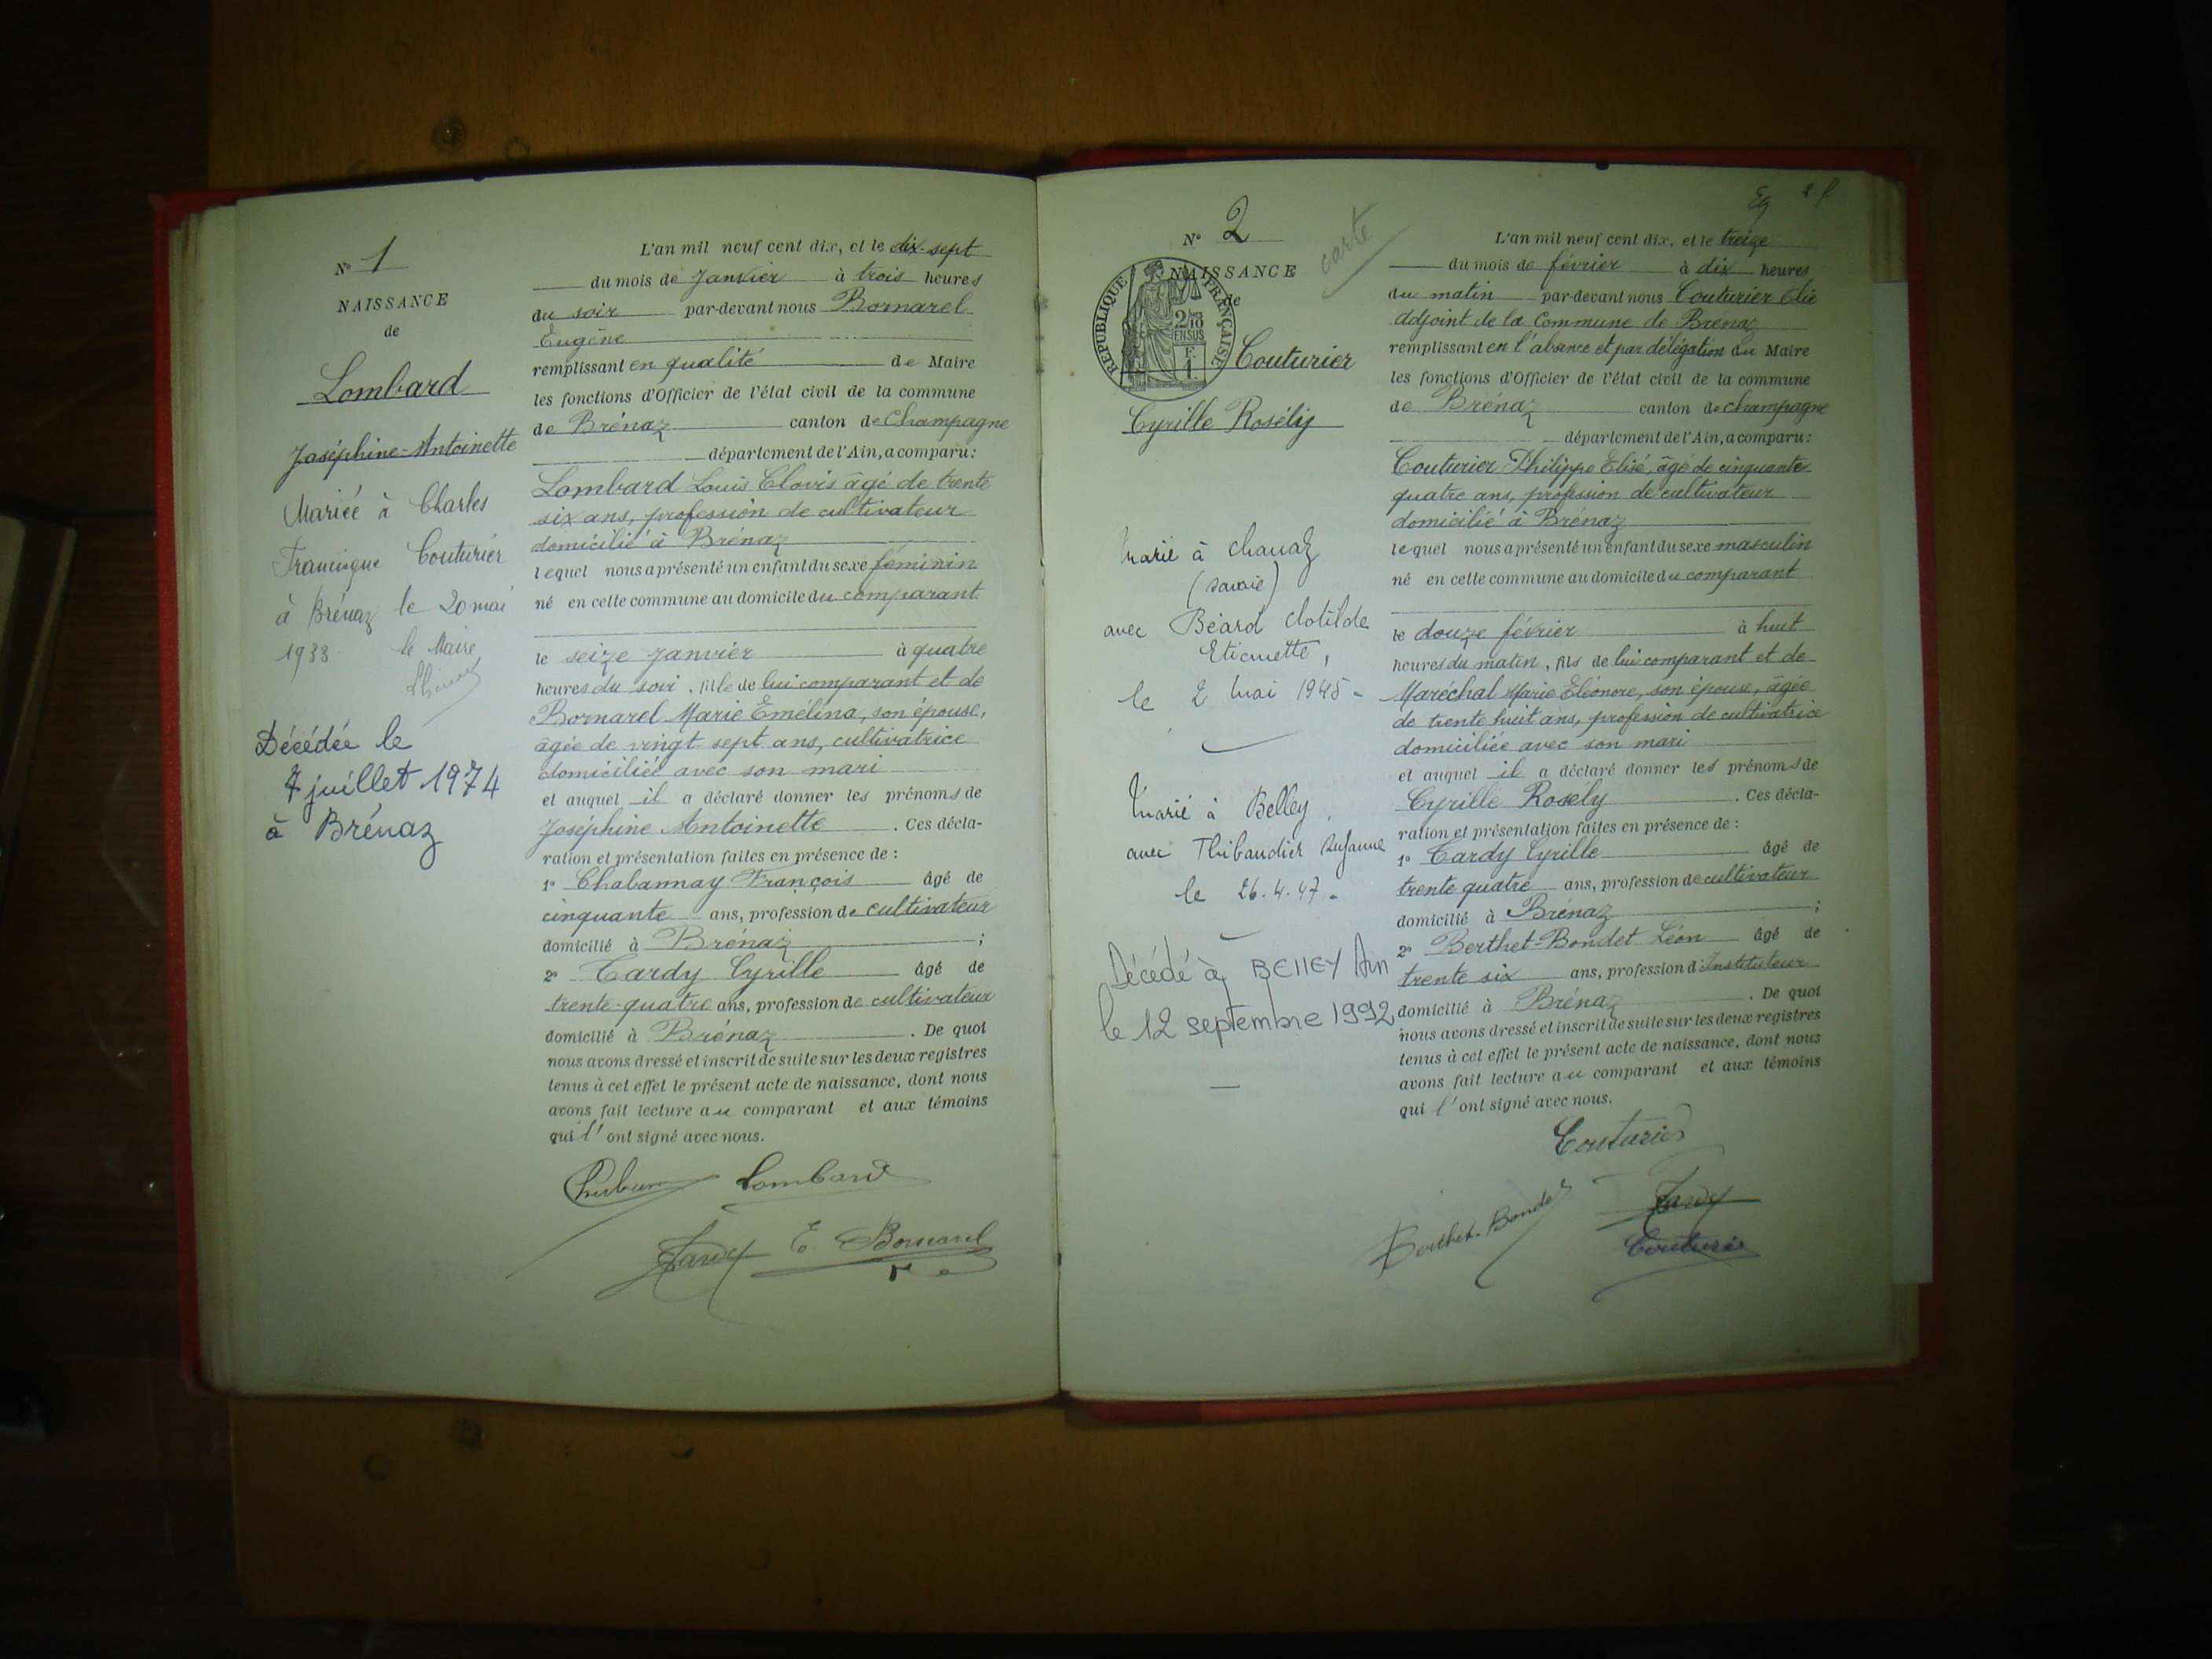 N° 1
NAISSANCE
de
Lombard
Joséphine-Antoinette
Mariée à Charles
Francisque Couturier
à Brénaz le 20 mai
1933 le Maire
Décédée le
7 juillet 1974
à Brénaz
L'an mil neuf cent dix, et le dix-sept
du mois de Janvier à trois heures
du soir par-devant nous Bornarel
Eugène
remplissant en qualité de Maire
les fonctions d'Officier de l'état civil de la commune
de Brénaz canton de Champagne
département de l'Ain, a comparu:
Lombard Louis Clovis âgé de trente
six ans, profession de cultivateur
domicilié à Brénaz
lequel nous a présenté un enfant du sexe féminin
né en cette commune au domicile du comparant
le seize Janvier à quatre
heures du soir, fille de lui comparant et de
Bornarel Marie Emélina, son épouse,
âgée de vingt sept ans, cultivatrice
domiciliée avec son mari
et auquel il a déclaré donner les prénoms de
Joséphine Antoinette. Ces décla-
ration et présentation faites en présence de :
1° Chabannay François âgé de
cinquante ans, profession de cultivateur
domicilié à Brénaz ;
2° Tardy Cyrille âgé de
trente-quatre ans, profession de cultivateur
domicilié à Brénaz. De quoi
nous avons dressé et inscrit de suite sur les deux registres
tenus à cet effet le présent acte de naissance, dont nous
avons fait lecture au comparant et aux témoins
qui l'ont signé avec nous.
Lombard
Tardy E Bornarel
N° 2
carte
NAISSANCE
de
REPUBLIQUE FRANÇAISE
2/10
EN SUS
F.
1.
Couturier
Cyrille Rosély
Marié à Chanaz
(Savoie)
avec Béard Clotilde
Etiennette,
le 2 Mai 1945-
Marié à Belley,
avec Thibaudier Suzanne
le 26.4.47-
Décédé à BELLEY Ain
le 12 septembre 1992
L'an mil neuf cent dix, et le treize
du mois de février à dix heures
du matin par-devant nous Couturier Elie
adjoint de la Commune de Brénaz
remplissant en l'absence et par délégation du Maire
les fonctions d'Officier de l'état civil de la commune
de Brénaz canton de Champagne
département de l'Ain, a comparu:
Couturier Philippe Elisé, âgé de cinquante
quatre ans, profession de cultivateur
domicilié à Brénaz
lequel nous a présenté un enfant du sexe masculin
né en cette commune au domicile du comparant
le douze février à huit
heures du matin, fils de lui comparant et de
Maréchal Marie Eléonore, son épouse, âgée
de trente huit ans, profession de cultivatrice
domiciliée avec son mari
et auquel il a déclaré donner les prénoms de
Cyrille Rosély. Ces décla-
ration et présentation faites en présence de :
1° Tardy Cyrille âgé de
trente quatre ans, profession de cultivateur
domicilié à Brénaz ;
2° Berthet-Bondet Léon âgé de
trente six ans, profession d'Instituteur
domicilié à Brénaz. De quoi
nous avons dressé et inscrit de suite sur les deux registres
tenus à cet effet le présent acte de naissance, dont nous
avons fait lecture au comparant et aux témoins
qui l'ont signé avec nous.
Couturier
Berthet-Bondet Tardy
Couturier